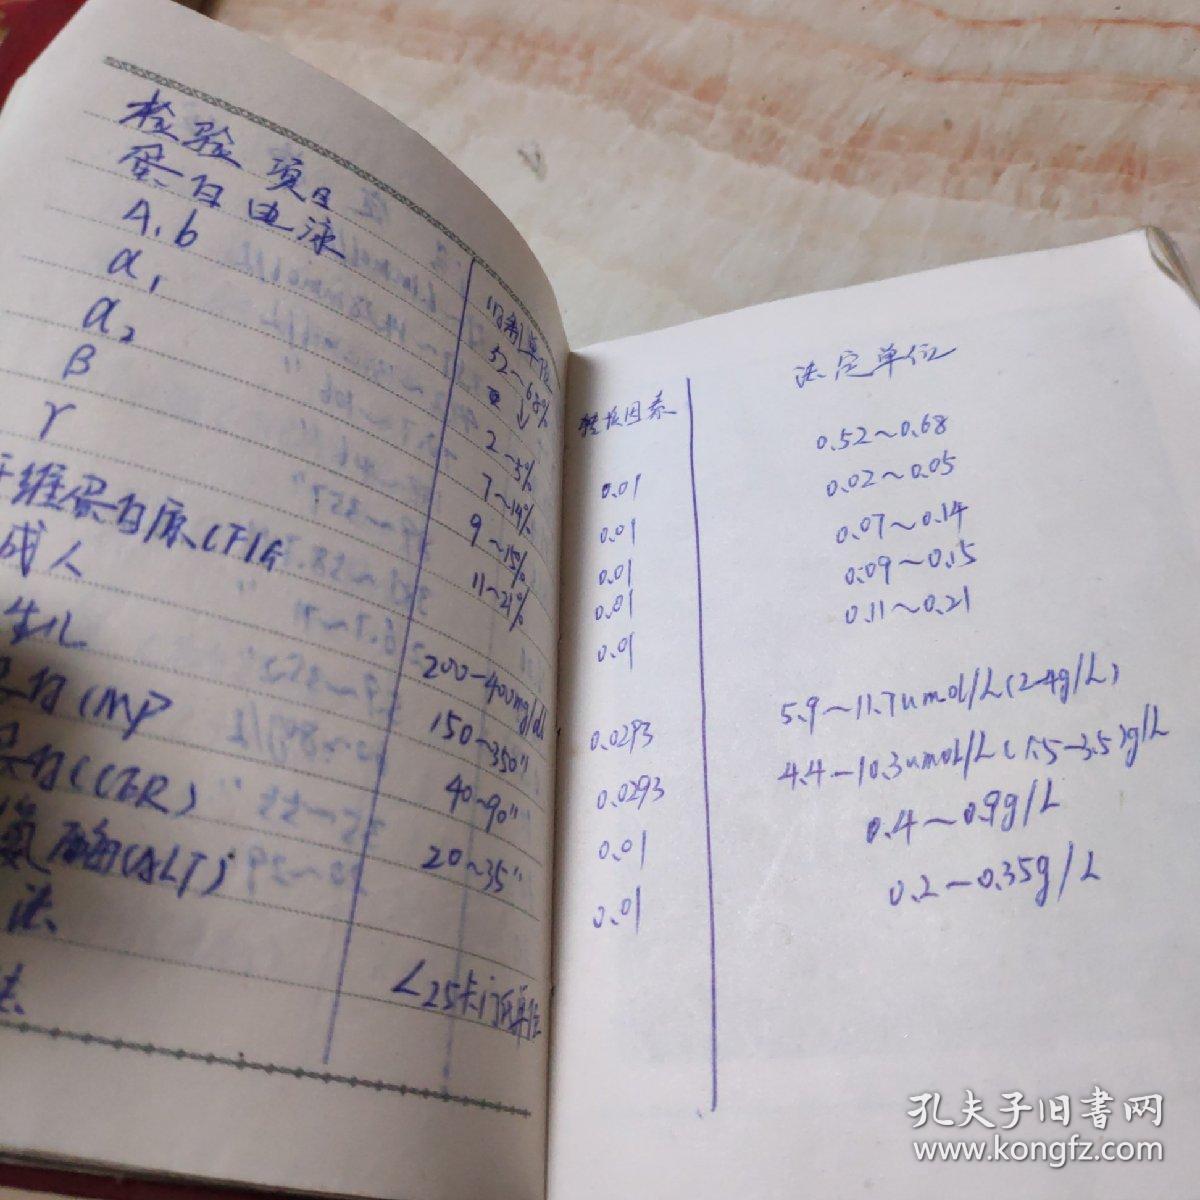 检验项目
蛋白电泳
A.b
α₁
α₂
β
γ
纤维蛋白原(FIG
成人
生儿
蛋白(MP
蛋白(CER)
氨酶(ALT)
法
法
旧制单位
52~68%
↓
2~5%
7~14%
9~15%
11~21%
200-400mg/dl
150~350"
40~90"
20~35"
<25卡门氏单位
转换因素
0.01
0.01
0.01
0.01
0.01
0.0293
0.0293
0.01
0.01
法定单位
0.52~0.68
0.02~0.05
0.07~0.14
0.09~0.15
0.11~0.21
5.9~11.7umol/L(2-4g/L)
4.4-10.3umol/L(1.5-3.5)g/L
0.4~0.9g/L
0.2-0.35g/L
孔夫子旧书网
www.kongfz.com